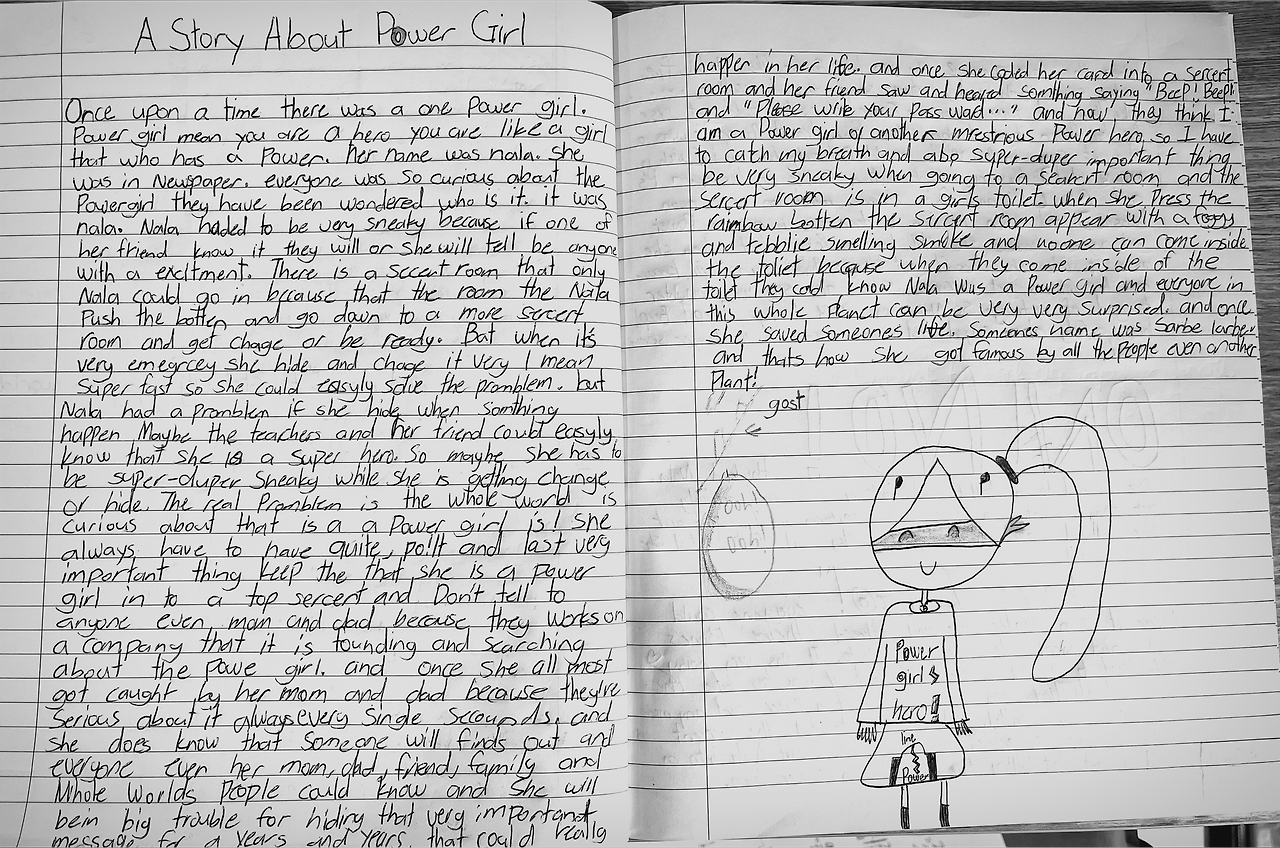 A Story About Power Girl
Once upon a time there was a one Power girl.
Power girl mean you are a hero you are like a girl
that who has a Power. her name was nala. she
was in Newspaper. everyone was so curious about the
Powergirl they have been wondered who is it. it was
nala. Nala haded to be very sneaky because if one of
her friend know it they will or she will tell be anyone
with a excitment. There is a seccent room that only
Nala could go in because that the room the Nala
Push the botten and go down to a more sercert
room and get chage or be ready. But when it's
very emegrcey she hide and chage it very I mean
super fast so she could easyly solve the promblem. but
Nala had a promblem if she hide when somthing
happen Maybe the teachers and her friend could easyly
know that she is a super hero. So maybe she has to
be super-duper sneaky while she is getting change
or hide. The real Promblem is the whole world is
curious about that is a a Power girl is! she
always have to have quite, polit and last very
important thing keep the that she is a power
girl in to a top sercent and Don't tell to
anyone even mom and dad because they works on
a company that it is founding and scarching
about the powe girl. and once she all most
got caught by her mom and dad because they're
serious about it always every single secounds, and
she does know that someone will finds out and
everyone even her mom, dad, friend, family and
Whole Worlds People could know and she will
bein big trouble for hiding that very important
message for a years and years. that could really
happer in her life. and once she coded her card into a sercert
room and her friend saw and heared somthing saying "Beep! Beep!
and "Please write your Pass wad..." and how they think I
am a Power girl of another mrestrious Power hero, so I have
to cath my breath and also super-duper important thing
be very sneaky when going to a seakert room and the
sercert room is in a girls toilet. when she Press the
rainbow botten the sircert room appear with a foggy
and tebblie smelling smoke and noone can come inside
the toliet because when they come inside of the
toilet they cold know Nala was a Power girl and everyone in
this whole Planet can be very very surprised. and once
she saved someones life. Someones name was barbe larber
and thats how she got famous by all the People even another
Plant!
gost
Power
girls
hero!
line
Power